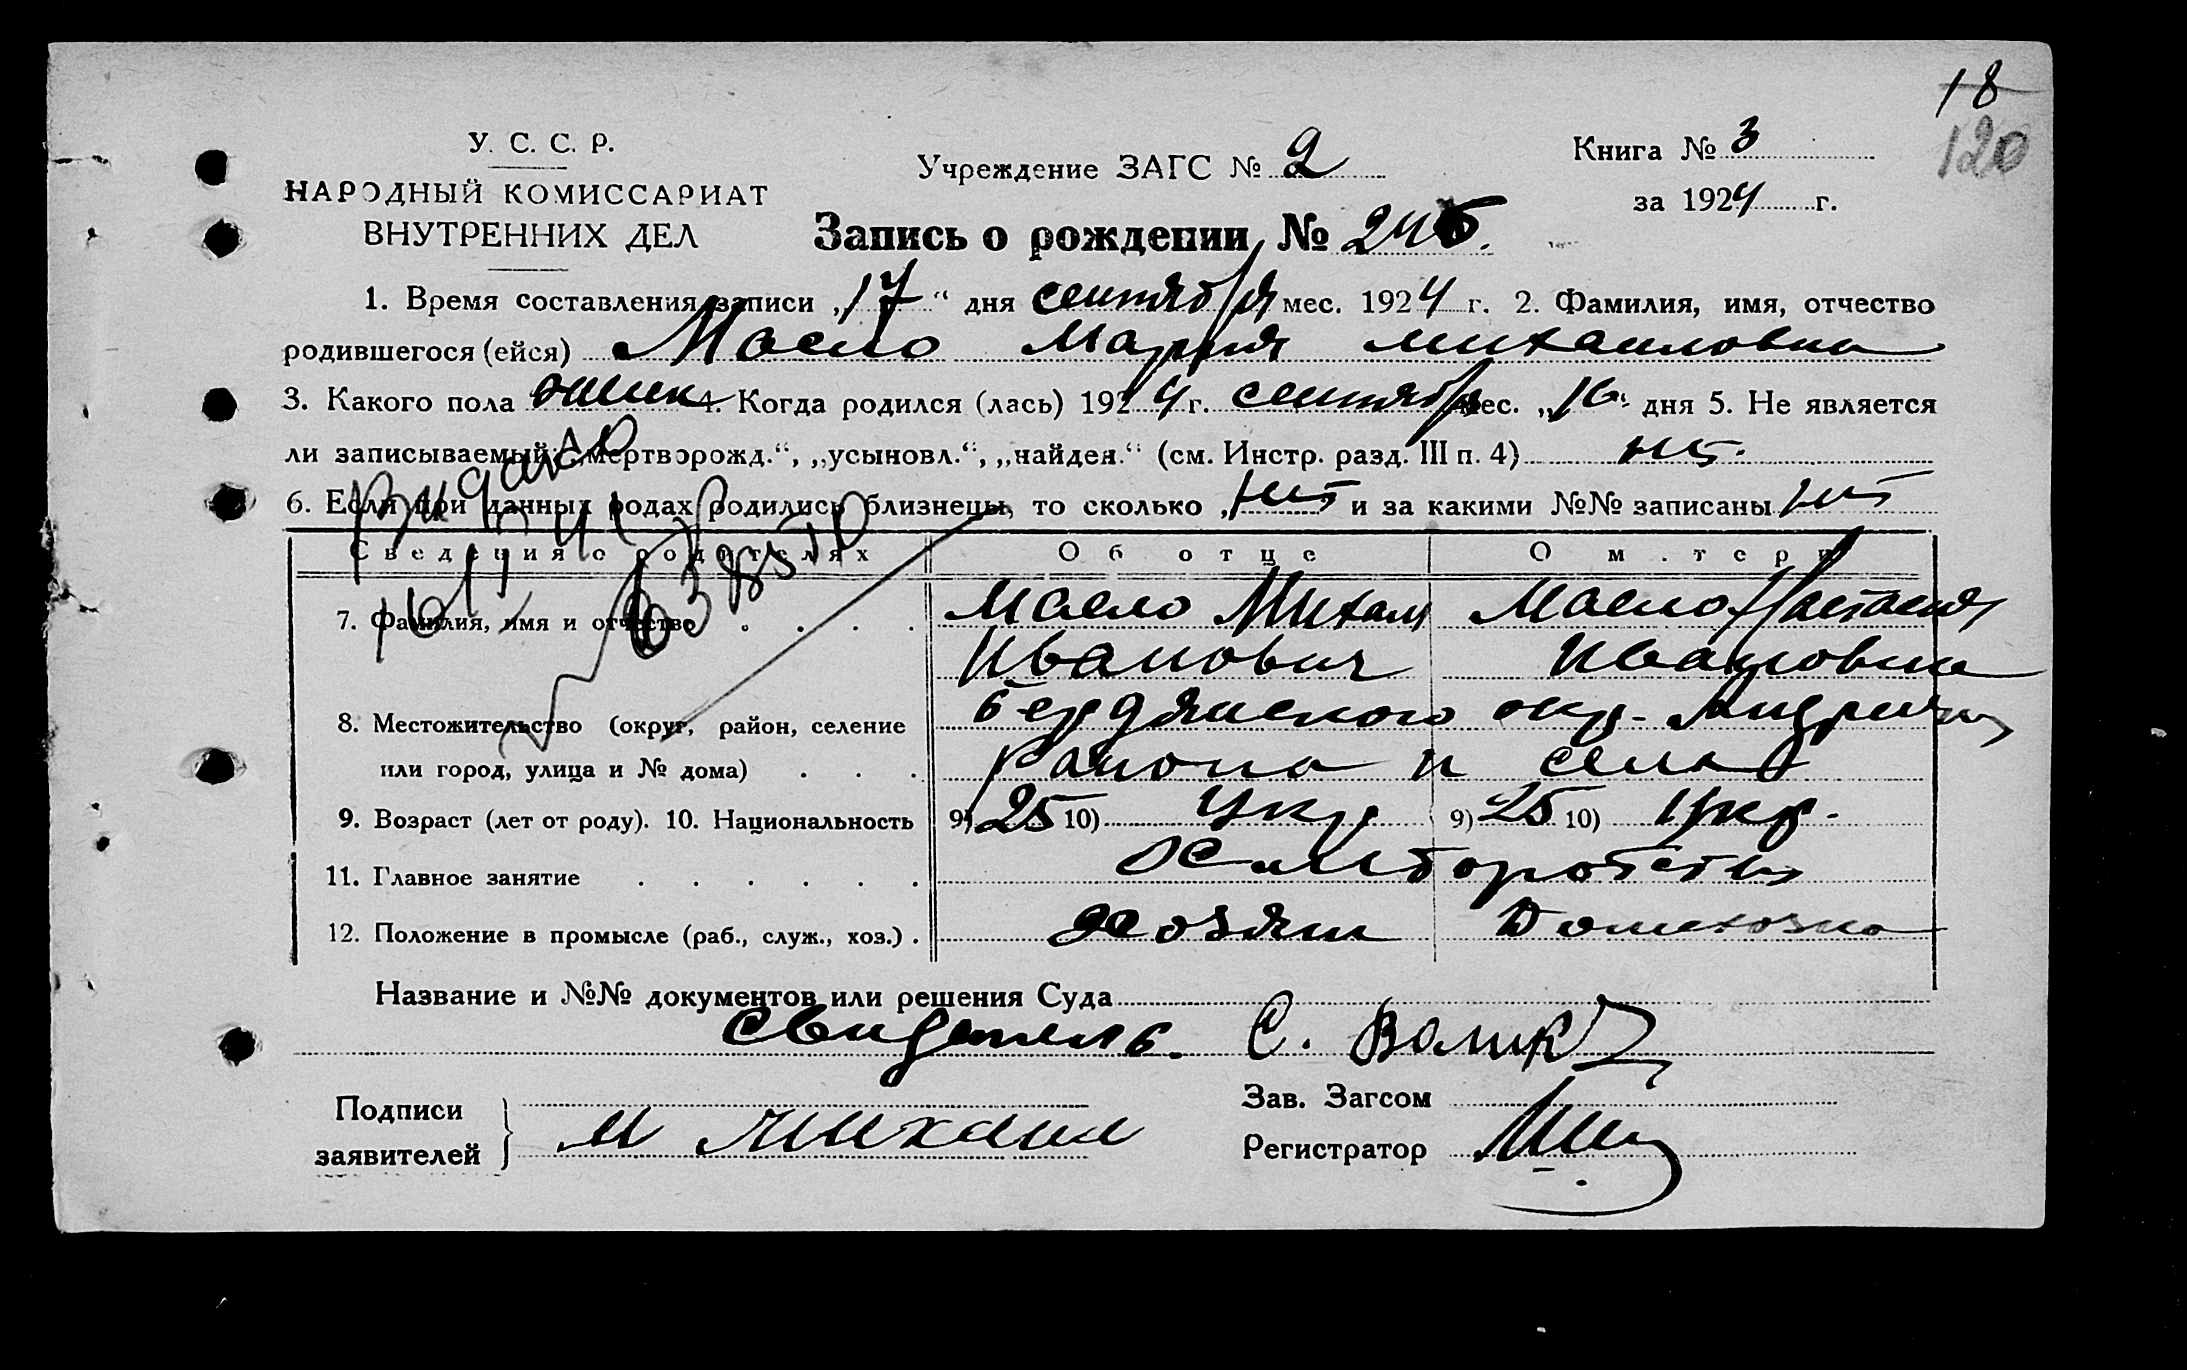 18
120
У. С. С. Р.
НАРОДНЫЙ КОМИССАРИАТ
ВНУТРЕННИХ ДЕЛ
Учреждение ЗАГС № 2
Книга № 3
за 1924 г.
Запись о рождении № 245.
1. Время составления записи „17“ дня сентября мес. 1924 г. 2. Фамилия, имя, отчество
родившегося (ейся) Масло Мария Михаиловна
3. Какого пола женск 4. Когда родился (лась) 1924 г. сентябр мес. „16“ дня 5. Не является
ли записываемый: „мертворожд.“, „усыновл.“, „найден.“ (см. Инстр. разд. III п. 4) нет.
6. Если при данных родах родились близнецы, то сколько „нет и за какими №№ записаны нет
Видано
Сведения о родителях Об отце О матери
7. Фамилия, имя и отчество Масло Михаил Масло Настасия
Иванович Ивановна
8. Местожительство (округ, район, селение Бердянского окр.
или город, улица и № дома) района и села
9. Возраст (лет от роду). 10. Национальность 9) 25 10) Укр 9) 25 10) Укр.
11. Главное занятие Хлеборобство
12. Положение в промысле (раб., служ., хоз.) Хозяин Домохозка
Название и №№ документов или решения Суда
Свидетель. С. Волик
Подписи
заявителей М Михаил
Зав. Загсом
Регистратор